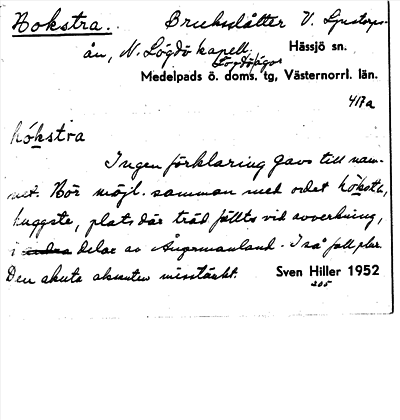 Hokstra. Bruksslåtter V. Ljustorps-
ån, N. Lögdö kapell, Hässjö sn.
Lögdö ägor
Medelpads ö. doms. tg, Västernorrl. län.
417a
hókstra
Ingen förklaring gavs till nam-
net. Hör möjl. samman med ordet hökstta,
huggste, plats där träd fällts vid avverkning,
i andra delar av Ångermanland. I så fall plur.
Den akuta aksenten misstänkt. Sven Hiller 1952
205